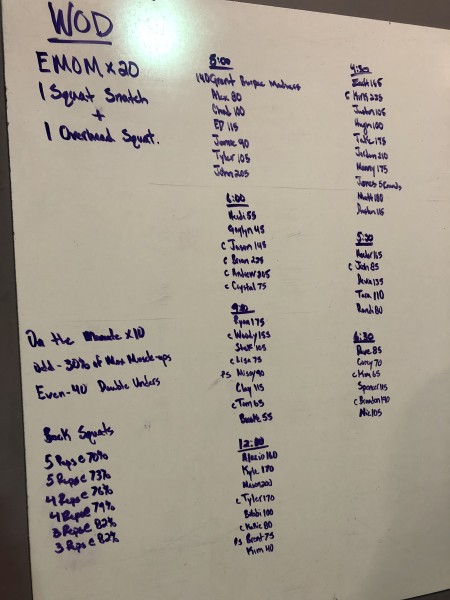 WOD
EMOM x 20
1 Squat Snatch
+
1 Overhead Squat.
On the Minute x10
odd - 30% of Max Muscle-ups
Even - 40 Double Unders
Back Squats
5 Reps @ 70%
5 Reps @ 73%
4 Reps @ 76%
4 Reps @ 79%
3 Reps @ 82%
3 Reps @ 82%
5:00
140 Grant Burpee Madness
Alex 80
Chad 100
ED 115
Jamie 90
Tyler 105
John 205
6:00
Heidi 55
45
c Jason 145
c Brian 225
c Andrew 205
c Crystal 75
9:00
Ryan 175
c Woody 155
Steph 105
c Lisa 75
PS Missy 90
Clay 115
c Tom 65
55
12:00
Alexio 160
Kyle 170
200
c Tyler 170
Bobbi 100
c Katie 80
PS Brent 75
Kim 40
4:30
165
c Kirk 235
Justin 105
Hugh 100
Jake 175
Jordan 210
Manny 175
James 5 Rounds
Matt 180
115
5:30
Heather 115
c Josh 85
Devin 135
Tara 110
Randi 80
6:30
Dave 85
Corey 70
c Kim 65
Spencer 115
c Brandon 190
Nic 105